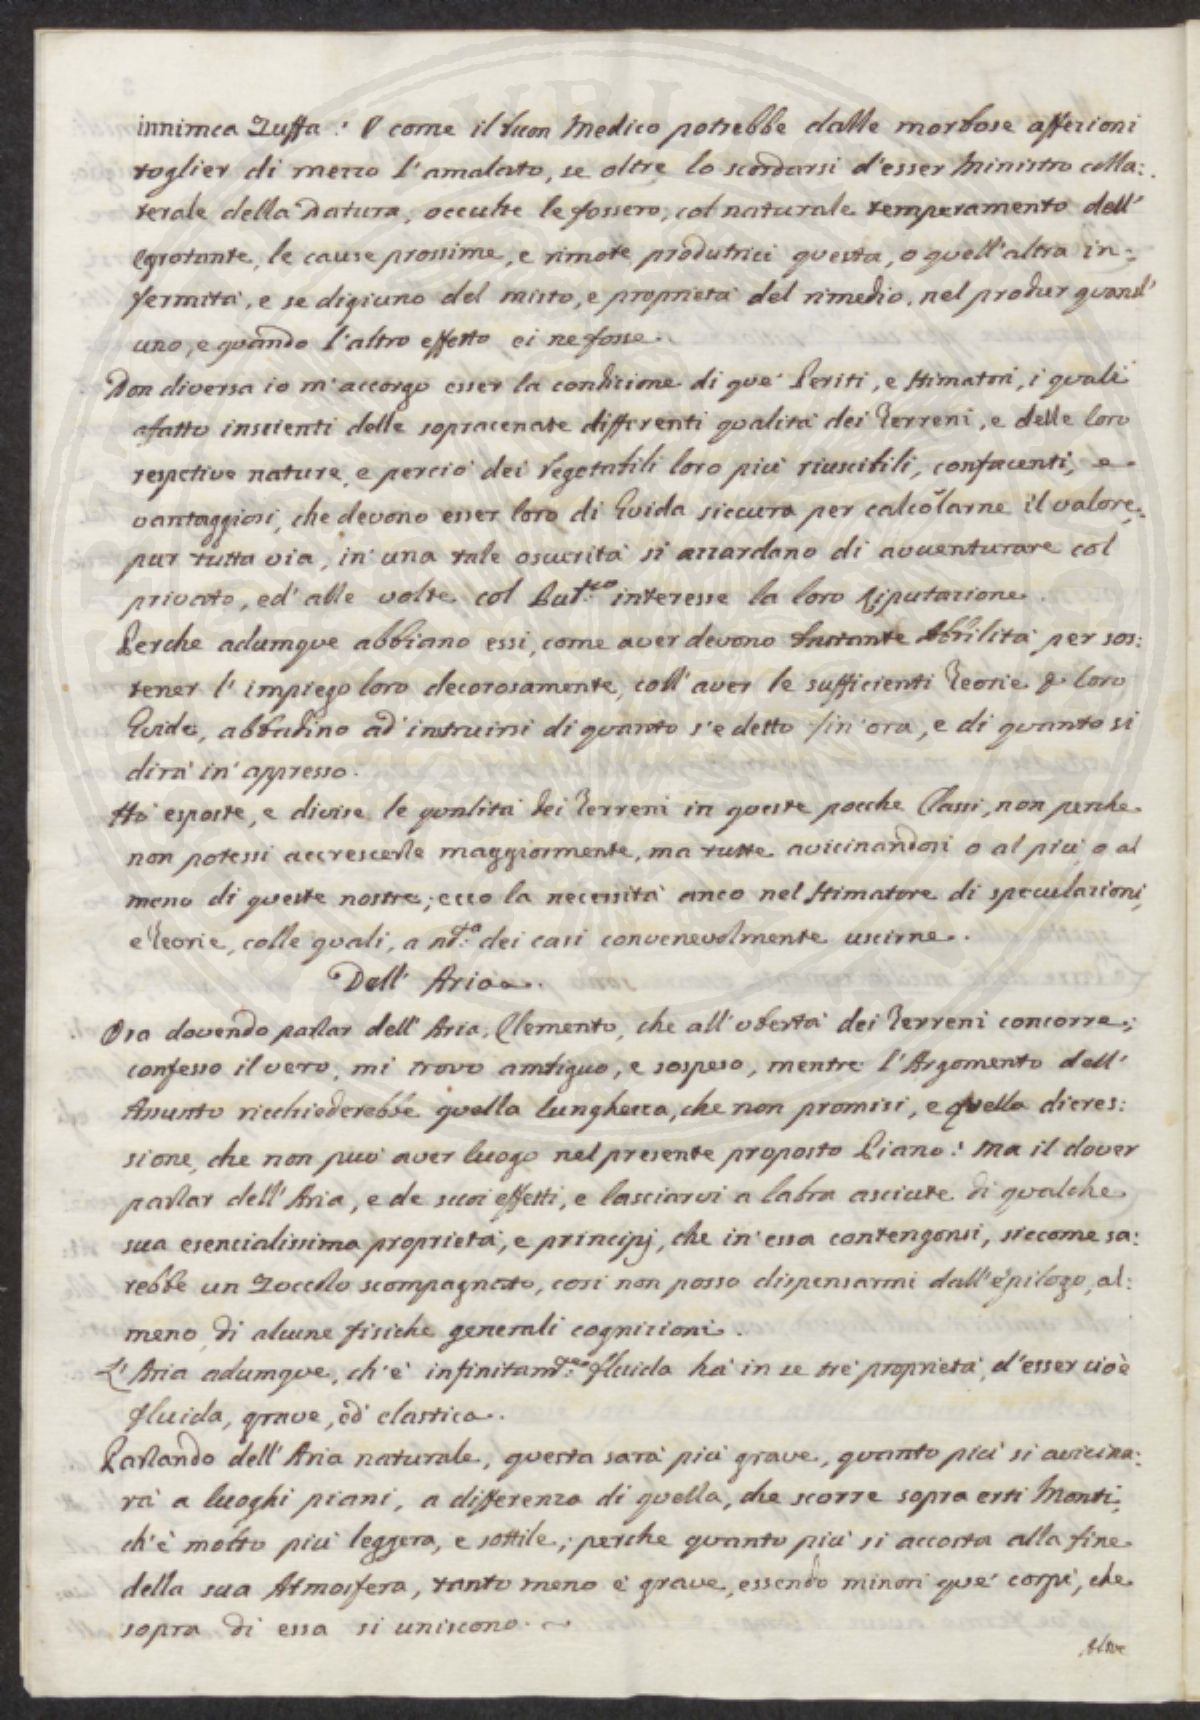 innimca Zuffa: O come il buon Medico potrebbe dalle morbose affezioni
toglier di mezzo l'amalato, se oltre lo scordarsi d'esser Ministro colla:
terale della Natura, occulte le fossero, col naturale temperamento dell'
Egrotante, le cause prossime, e rimote produtrici questa, o quell'altra in:
fermità, e se digiuno del misto, e proprietà del rimedio, nel produr quand'
uno, e quando l'altro effetto ei ne fosse.
Non diversa io m'accorgo esser la condicione di que' Periti, e Stimatori, i quali
afatto inscienti delle sopracenate differenti qualità dei Terreni, e delle loro
respetive nature, e perciò dei Vegetabili loro più riuscibili, confacenti, e
vantaggiosi, che devono esser loro di Guida siccura per calcolarne il valore,
pur tutta via, in' una tale oscurità si azzardano di avventurare col
privato, ed' alle volte col Pub.co interesse la loro Riputazione.
Perche adumque abbiano essi, come aver devono bastante Abbilità per sos:
tener l'impiego loro decorosamente, coll'aver le sufficienti Teorie p loro
Guide, abbadino ad' instruirsi di quanto s'è detto sin' ora, e di quanto si
dirà in' appresso.
Hò esposte, e divise le qualità dei Terreni in queste pocche Classi, non perche
non potessi accrescerle maggiormente, ma tutte avicinandosi o al più, o al
meno di queste nostre; ecco la necessità anco nel Stimatore di speculazioni,
e Teorie, colle quali, a nd.a dei casi convenevolmente uscirne.
Dell' Aria.
Ora dovendo parlar dell' Aria, Elemento, che all' ubertà dei Terreni concorre;
confesso il vero, mi trovo ambiguo, e sospeso, mentre l'Argomento dell'
Assunto ricchiederebbe quella lunghezza, che non promisi, e quella dicres:
sione, che non può aver luogo nel presente proposto Piano: Ma il dover
parlar dell' Aria, e de suoi effetti, e lasciarvi a labra asciute di qualche
sua esencialissima proprietà, e principj, che in' essa contengonsi, siccome sa:
rebbe un Zoccolo scompagnato, così non posso dispensarmi dall' epilogo, al:
meno, di alcune fisiche generali cognizioni.
L' Aria adumque, ch'è infinitam.te fluida hà in se trè proprietà, d'esser cioè
fluida, grave, ed' elastica.
Parlando dell' Aria naturale, questa sarà più grave, quanto più si avicina:
rà a luoghi piani, a differenza di quella, che scorre sopra erti Monti,
ch'è molto più leggera, e sottile; perche quanto più si accosta alla fine
della sua Atmosfera, tanto meno è grave, essendo minori que' corpi, che
sopra di essa si uniscono.